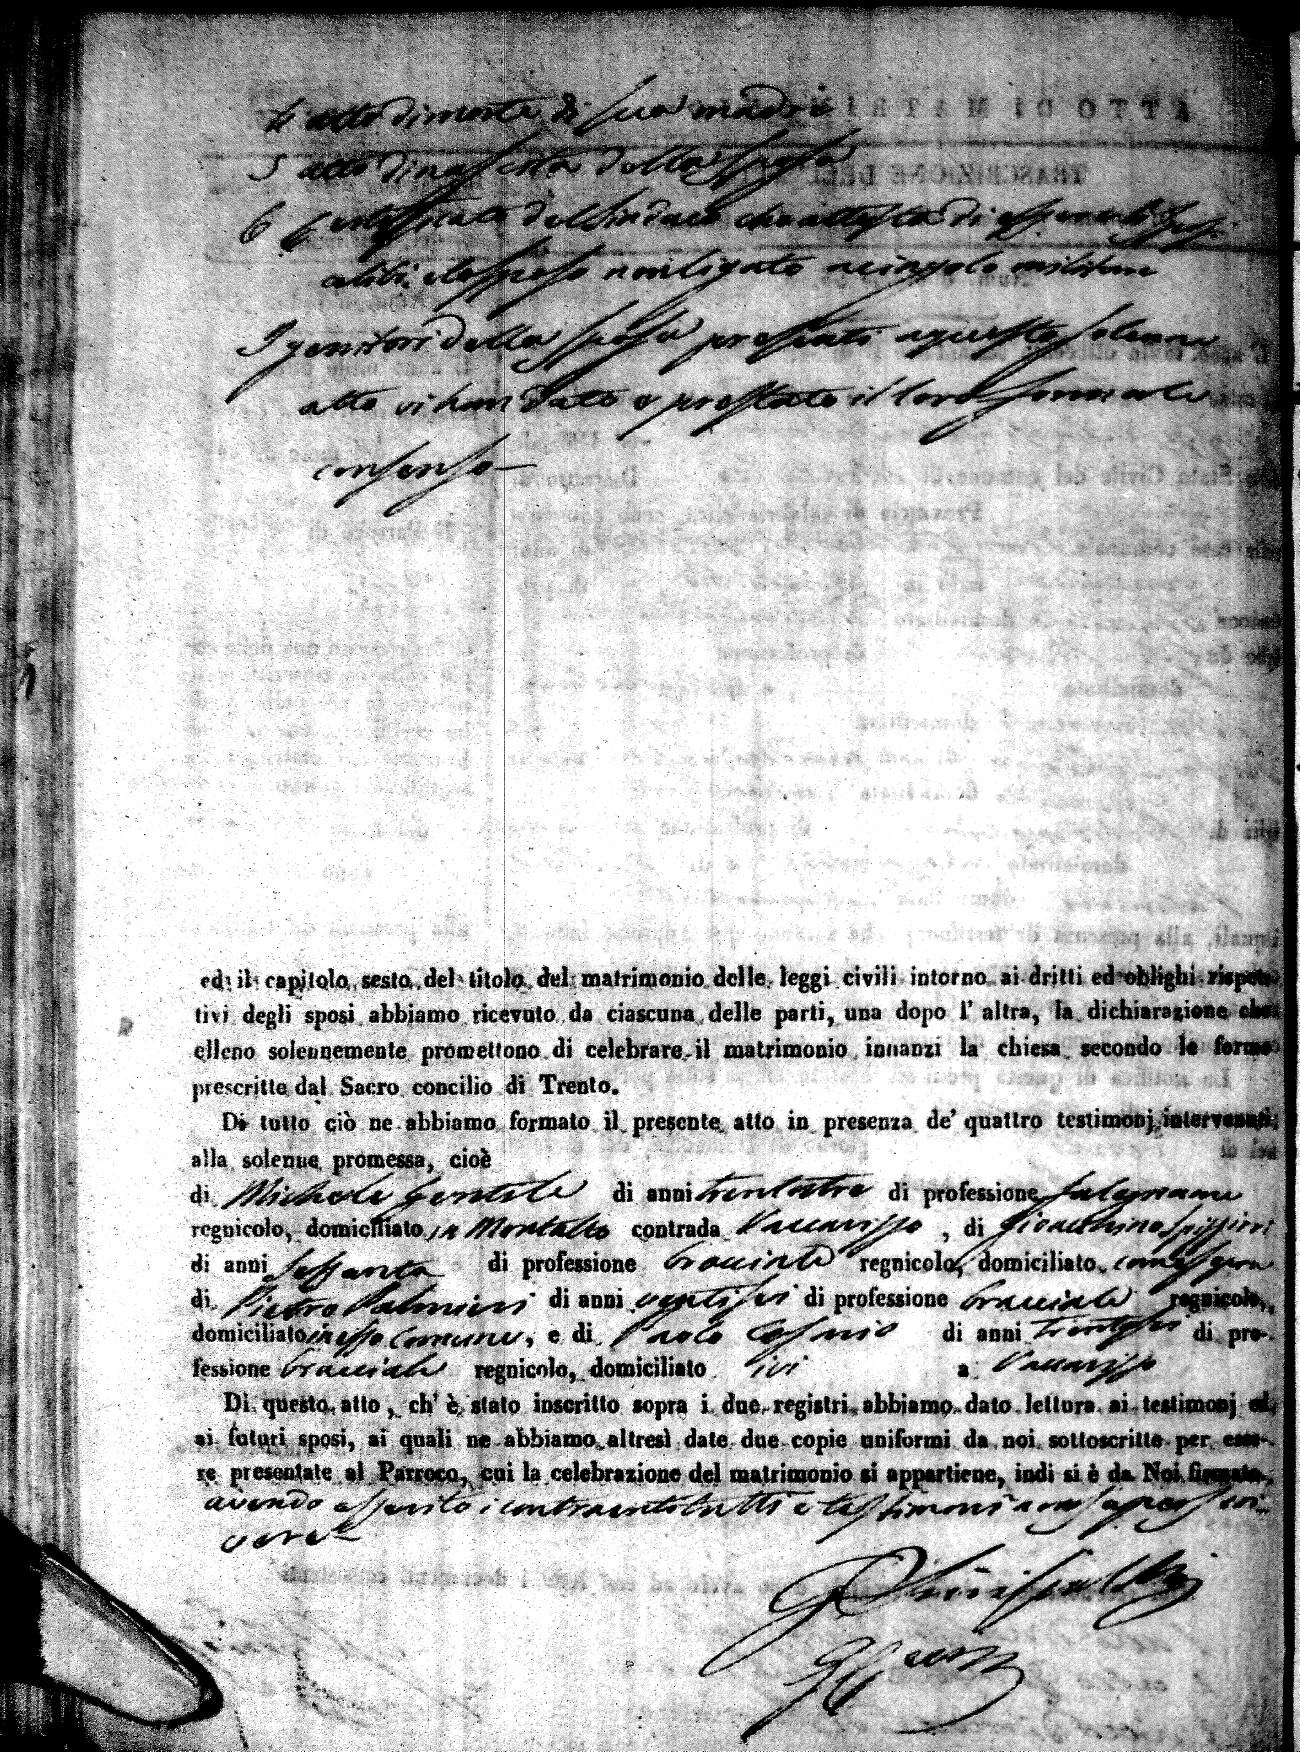 4 atto di morte di sua madre
5 atto di nascita della sposa
6 Certificato del Sindaco che attesta di essere ambi
e lo sposo non ligato a cingolo militare
I genitori della sposa presenti a questo solenne
atto vi han dato e prestato il loro formale
consenso —
ed il capitolo sesto del titolo del matrimonio delle leggi civili intorno ai dritti ed oblighi rispet-
tivi degli sposi abbiamo ricevuto da ciascuna delle parti, una dopo l' altra, la dichiarazione che
elleno solennemente promettono di celebrare il matrimonio innanzi la chiesa secondo le forme
prescritte dal Sacro concilio di Trento.
Di tutto ciò ne abbiamo formato il presente atto in presenza de' quattro testimonj intervenuti
alla solenne promessa, cioè
di Michele Gentile di anni trentatre di professione falegname
regnicolo, domiciliato in Montalto contrada Vaccarizzo , di Gioacchino
di anni sessanta di professione bracciale regnicolo, domiciliato come sopra
di Pietro Palmieri di anni ventisei di professione bracciale regnicolo,
domiciliato in esso Comune, e di Paolo di anni di pro-
fessione bracciale regnicolo, domiciliato ivi a Vaccarizzo
Di questo atto, ch' è stato inscritto sopra i due registri abbiamo dato lettura ai testimonj ed
ai futuri sposi, ai quali ne abbiamo altresì date due copie uniformi da noi sottoscritte per esse-
re presentate al Parroco, cui la celebrazione del matrimonio si appartiene, indi si è da Noi firmato,
avendo asserito i contraenti tutti e testimoni non saper scri-
vere